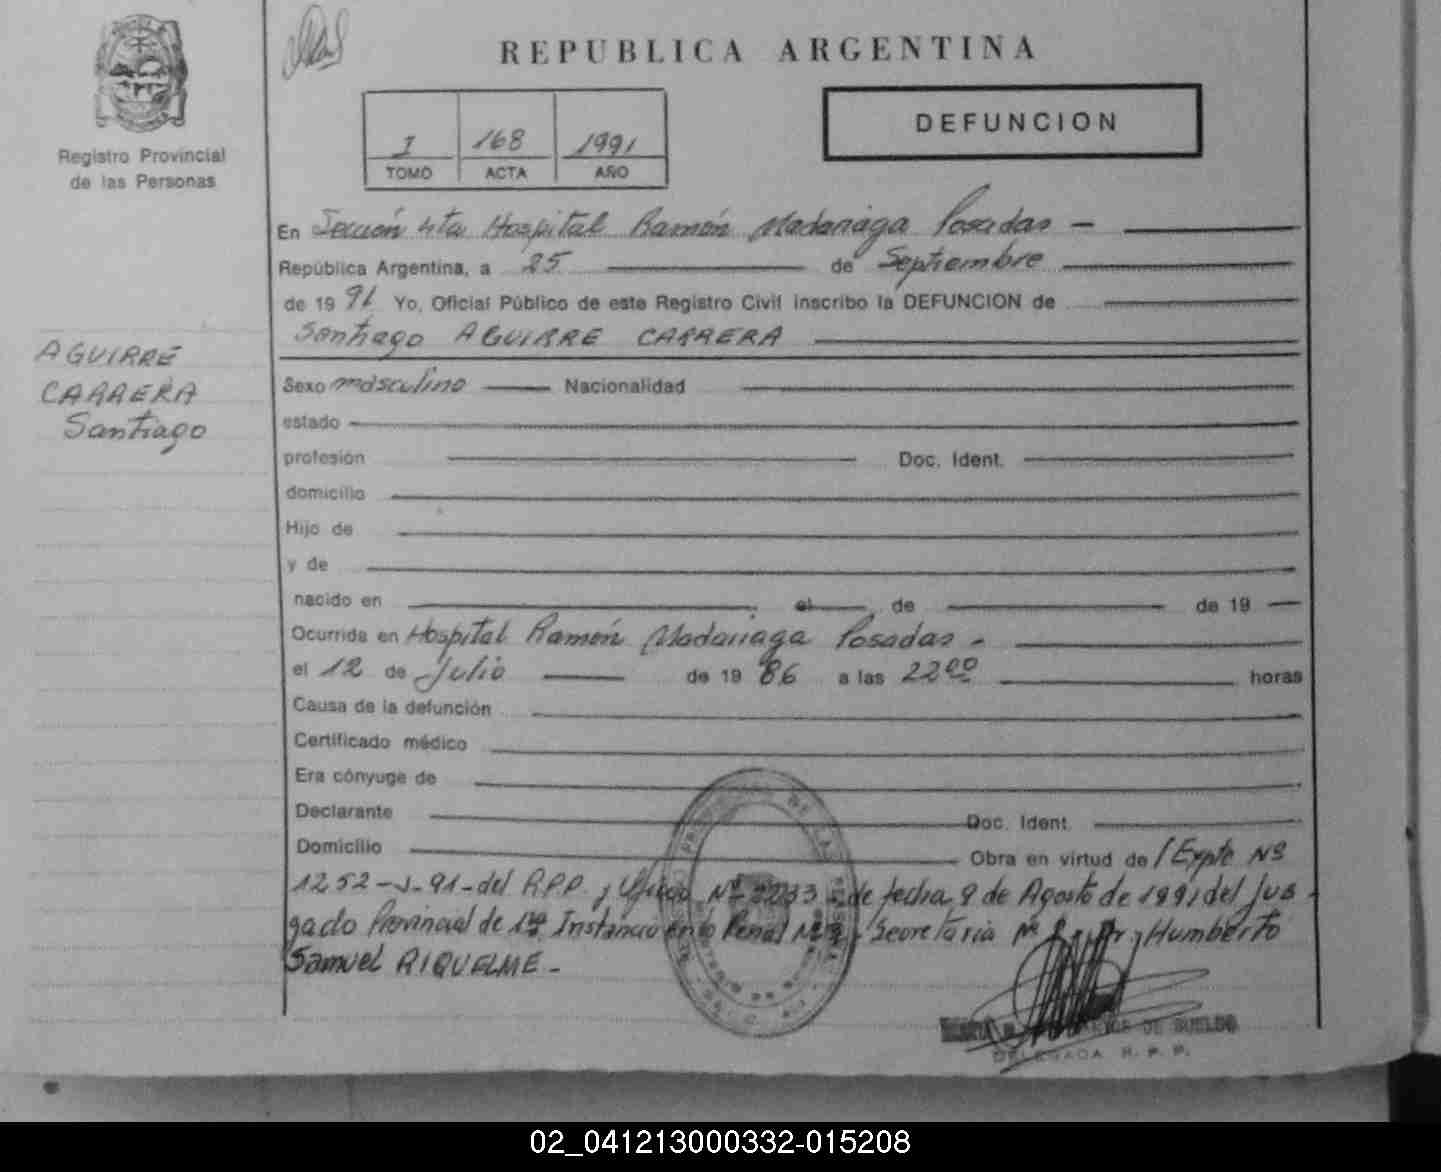 Registro Provincial
de las Personas
REPUBLICA ARGENTINA
I 168 1991
TOMO ACTA AÑO
DEFUNCION
En Sección 4ta Hospital Ramón Madariaga Posadas -
República Argentina, a 25 de Septiembre
de 19 91 Yo, Oficial Público de este Registro Civil inscribo la DEFUNCION de
Santiago AGUIRRE CARRERA
AGUIRRE
CARRERA
Santiago
Sexo masculino Nacionalidad
estado
profesión Doc. Ident.
domicilio
Hijo de
y de
nacido en el de de 19
Ocurrida en Hospital Ramón Madariaga Posadas -
el 12 de Julio de 19 86 a las 22 00 horas
Causa de la defunción
Certificado médico
Era cónyuge de
Declarante Doc. Ident.
Domicilio Obra en virtud de Expte Nº
1252-J-91-del R.P.P. y Oficio Nº 3233 de fecha 9 de Agosto de 1991 del Juz-
gado Provincial de 1ra Instancia en lo Penal Nº Secretaria Nº Humberto
Samuel RIQUELME -
DE SUELDO
DELEGADA R. P. P.
02_041213000332-015208